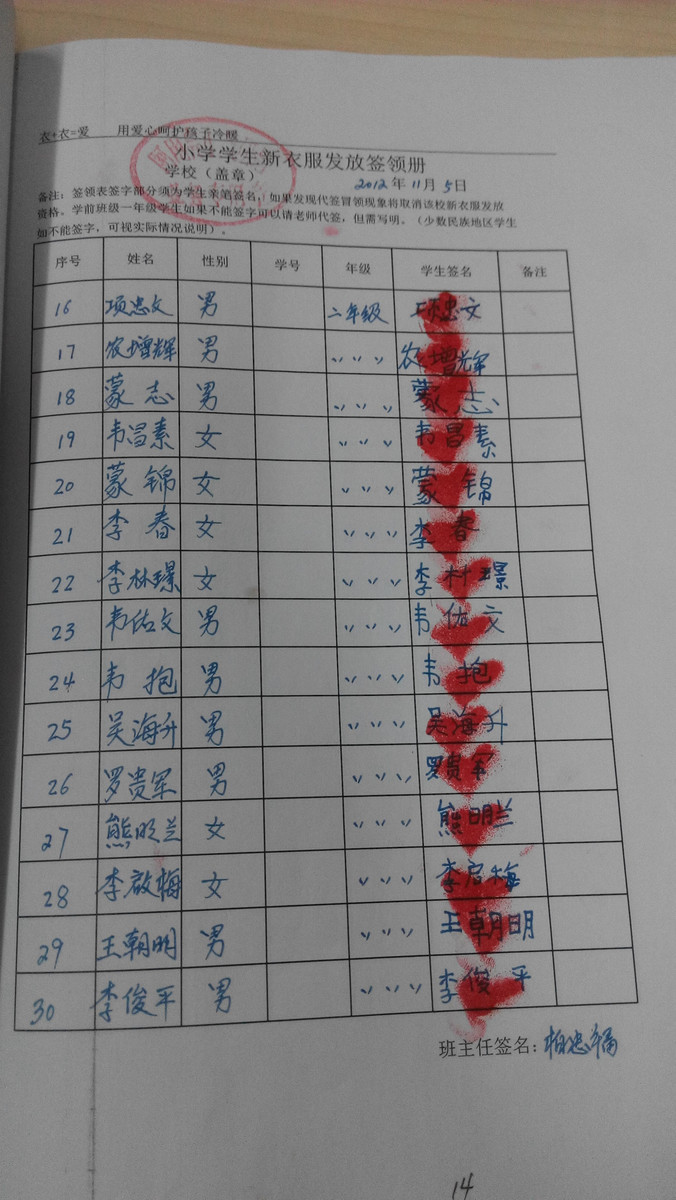 衣+衣=爱 用爱心呵护孩子冷暖
小学学生新衣服发放签领册
学校（盖章） 2012年11月5日
备注：签领表签字部分须为学生亲笔签名，如果发现代签冒领现象将取消该校新衣服发放
资格。学前班级一年级学生如果不能签字可以请老师代签，但需写明。（少数民族地区学生
如不能签字，可视实际情况说明）。
序号 姓名 性别 学号 年级 学生签名 备注
16 项忠文 男 二年级 项忠文
17 农增辉 男 〃 农增辉
18 蒙志 男 〃 蒙志
19 韦昌素 女 〃 韦昌素
20 蒙锦 女 〃 蒙锦
21 李春 女 〃 李春
22 李林璟 女 〃 李林璟
23 韦佑文 男 〃 韦佑文
24 韦抱 男 〃 韦抱
25 吴海升 男 〃 吴海升
26 罗贵军 男 〃 罗贵军
27 熊明兰 女 〃 熊明兰
28 李啟梅 女 〃 李启梅
29 王朝明 男 〃 王朝明
30 李俊平 男 〃 李俊平
班主任签名：
14